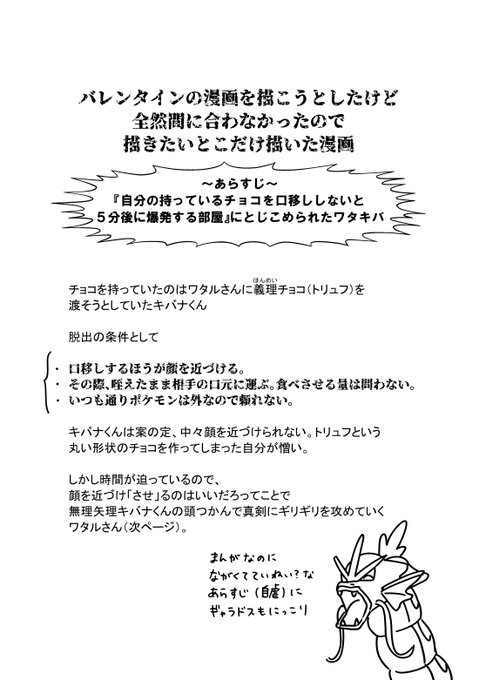 バレンタインの漫画を描こうとしたけど
全然間に合わなかったので
描きたいとこだけ描いた漫画
～あらすじ～
『自分の持っているチョコを口移ししないと
５分後に爆発する部屋』にとじこめられたワタキバ
チョコを持っていたのはワタルさんに義理チョコ（トリュフ）を
ほんめい
渡そうとしていたキバナくん
脱出の条件として
・ 口移しするほうが顔を近づける。
・ その際、咥えたまま相手の口元に運ぶ。食べさせる量は問わない。
・ いつも通りポケモンは外なので頼れない。
キバナくんは案の定、中々顔を近づけられない。トリュフという
丸い形状のチョコを作ってしまった自分が憎い。
しかし時間が迫っているので、
顔を近づけ「させ」るのはいいだろってことで
無理矢理キバナくんの頭つかんで真剣にギリギリを攻めていく
ワタルさん（次ページ）。
まんがなのに
ながくてていねい？な
あらすじ（自虐）に
ギャラドスもにっこり